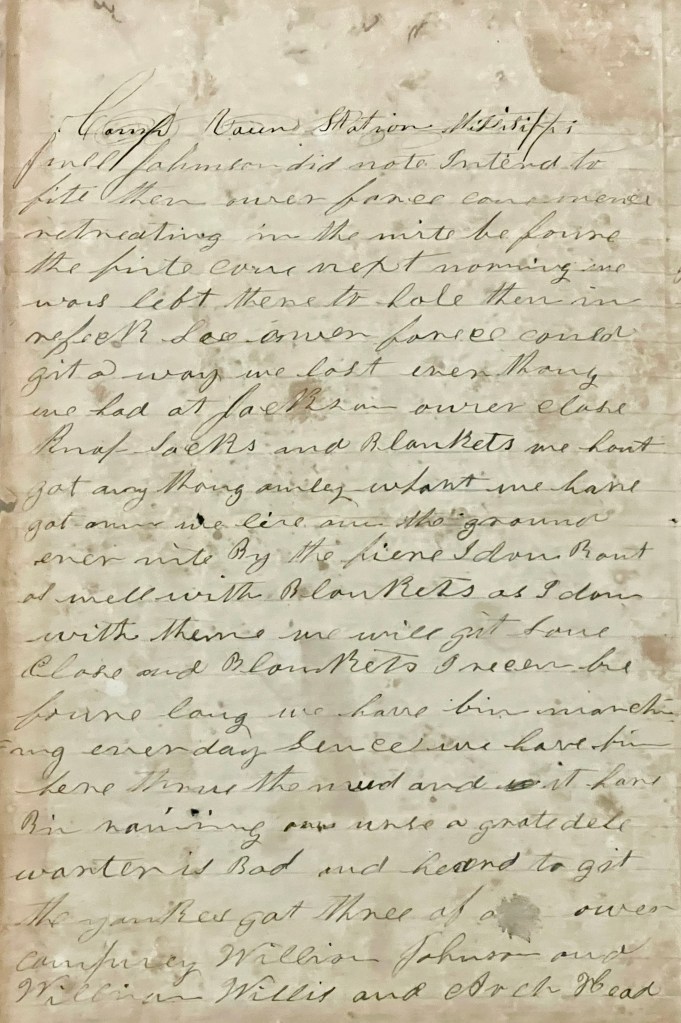 Camp Vaun Station Missisippi
Jinel Johnson did note Intend to
fite then ower forces comemence
retreating in the nite be foure
the fite cone next morning we
wars left there to hole them in
ower forces could
git a way we lost ever thang
we had at Jackson ower close
Knap Sacks and Blankets we hant
got any thang onley whant we have
got on we lire on the ground
ever nite By the fiere I don Bout
as well with Blankets as I don
with theme we will git some
Close and Blankets I recen be
foure lang we have bin march
ing ever day Sence we have bin
here thrue the mud and it have
Bin raining on unse a grate dele
warter is Bad and heard to git
the yankes got three of ower
compney William Johnson and
William Willis and Arch Head